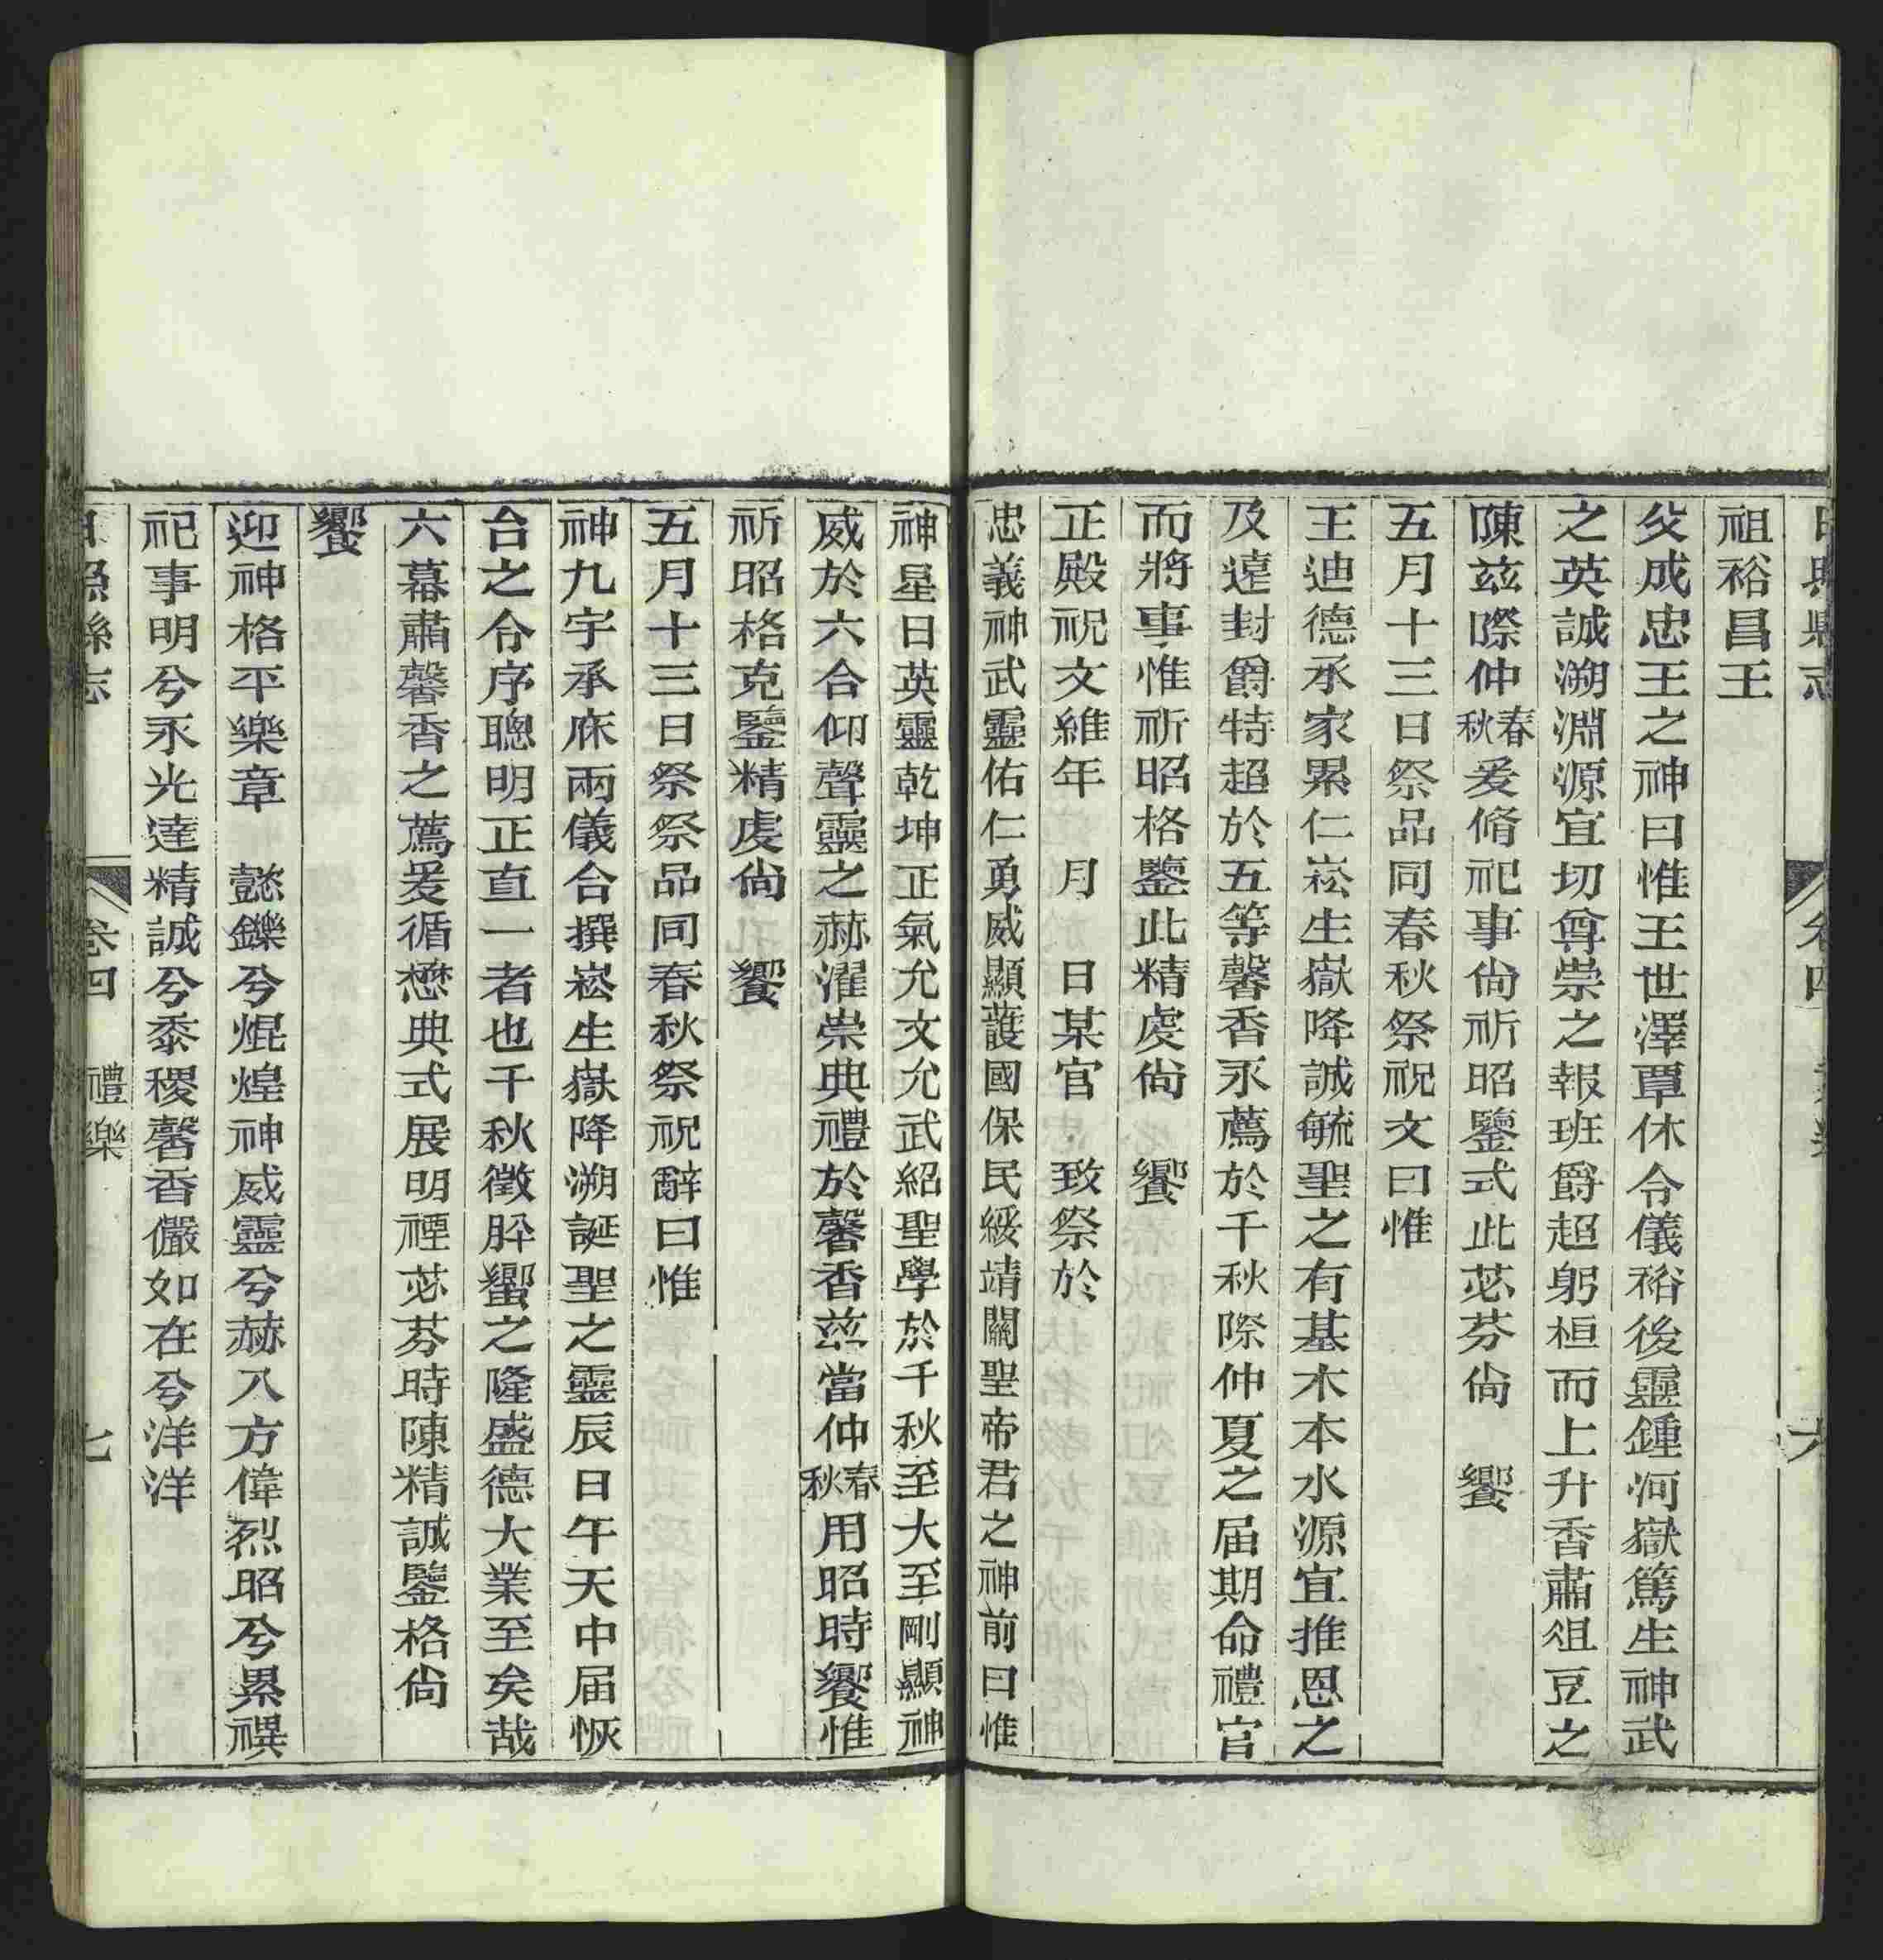 祖裕昌王
父成忠王之神曰惟王世澤覃休令儀裕後靈鍾河嶽篤生神武
之英誠溯淵源宜切尊崇之報班爵超躬桓而上升香肅俎豆之
陳茲際仲春秋爰脩祀事尙祈昭鑒式此苾芬尙　饗
五月十三日祭品同春秋祭祝文曰惟
王迪德承家累仁崧生嶽降誠毓聖之有基木本水源宜推恩之
及遠封爵特超於五等馨香永薦於千秋際仲夏之届期命禮官
而將事惟祈昭格鑒此精虔尙　饗
正殿祝文維年　月　日某官　致祭於
忠義神武靈佑仁勇威顯護國保民綏靖關聖帝君之神前曰惟
神星日英靈乾坤正氣允文允武紹聖學於千秋至大至剛顯神
威於六合仰聲靈之赫濯崇典禮於馨香兹當仲春秋用昭時饗惟
祈昭格克鑒精虔尙　饗
五月十三日祭祭品同春秋祭祝辭曰惟
神九宇承庥兩儀合撰崧生嶽降溯誕聖之靈辰日午天中届恢
台之令序聰明正直一者也千秋徵肸蠁之隆盛德大業至矣哉
六幕肅馨香之薦爰循懋典式展明禋苾芬時陳精誠鑒格尙
饗
迎神格平樂章　懿鑠兮焜煌神威靈兮赫八方偉烈昭兮累禩
祀事明兮永光達精誠兮黍稷馨香儼如在兮洋洋
日照縣志　卷四　禮樂　七